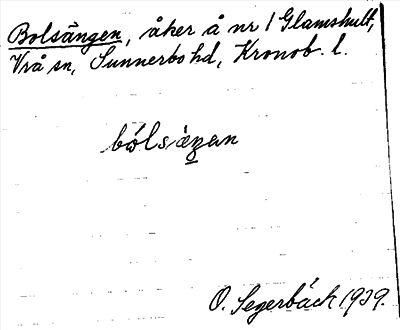 Bolsängen, åker å nr 1 Glamshult,
Vrå sn, Sunnerbo hd, Kronob. l.
O. Segerbäck 1929.